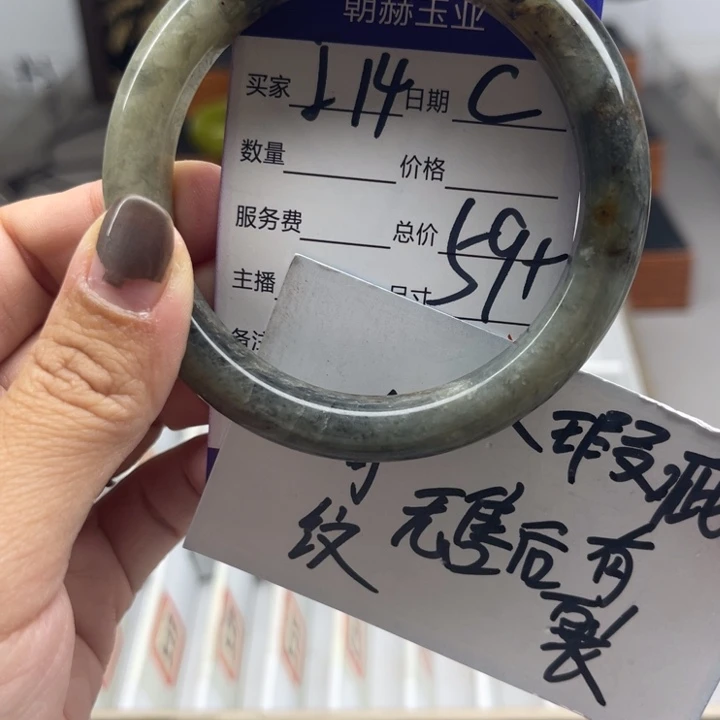 朝赫玉业
买家 114 日期 C
数量 价格
服务费 总价
主播 尺寸 59+
备注
瑕疵
纹 无售后有
裂